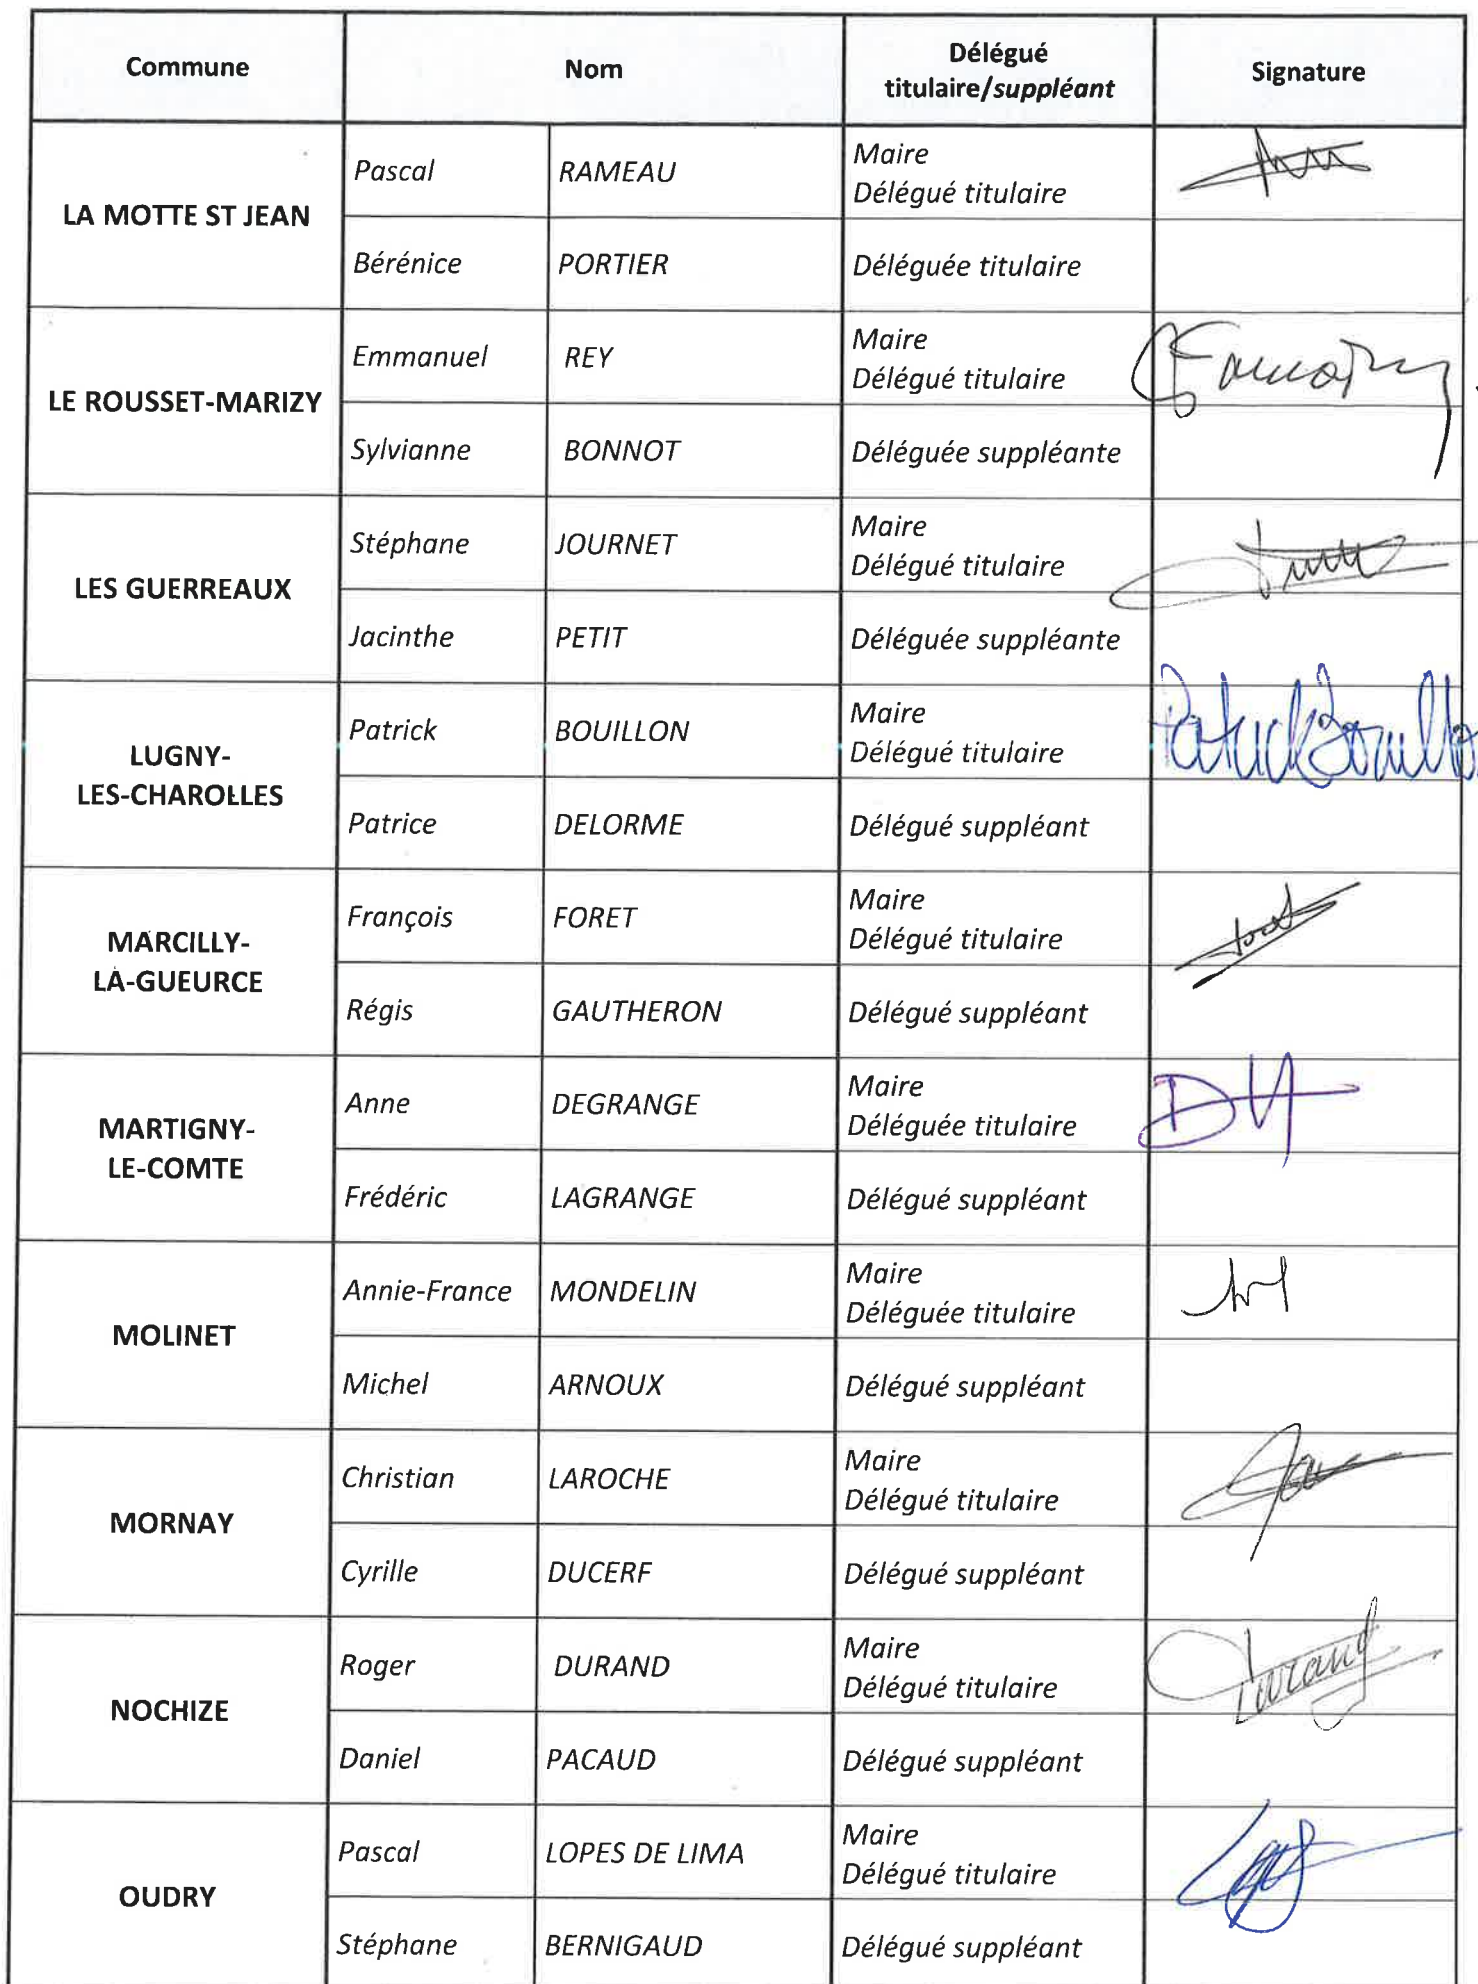 Commune Nom Délégué titulaire/suppléant Signature
LA MOTTE ST JEAN
Pascal RAMEAU Maire
Délégué titulaire
Bérénice PORTIER Déléguée titulaire
LE ROUSSET-MARIZY
Emmanuel REY Maire
Délégué titulaire
Sylvianne BONNOT Déléguée suppléante
LES GUERREAUX
Stéphane JOURNET Maire
Délégué titulaire
Jacinthe PETIT Déléguée suppléante
LUGNY-
LES-CHAROLLES
Patrick BOUILLON Maire
Délégué titulaire Patrick Bouillon
Patrice DELORME Délégué suppléant
MARCILLY-
LA-GUEURCE
François FORET Maire
Délégué titulaire
Régis GAUTHERON Délégué suppléant
MARTIGNY-
LE-COMTE
Anne DEGRANGE Maire
Déléguée titulaire
Frédéric LAGRANGE Délégué suppléant
MOLINET
Annie-France MONDELIN Maire
Déléguée titulaire
Michel ARNOUX Délégué suppléant
MORNAY
Christian LAROCHE Maire
Délégué titulaire
Cyrille DUCERF Délégué suppléant
NOCHIZE
Roger DURAND Maire
Délégué titulaire Durand
Daniel PACAUD Délégué suppléant
OUDRY
Pascal LOPES DE LIMA Maire
Délégué titulaire
Stéphane BERNIGAUD Délégué suppléant